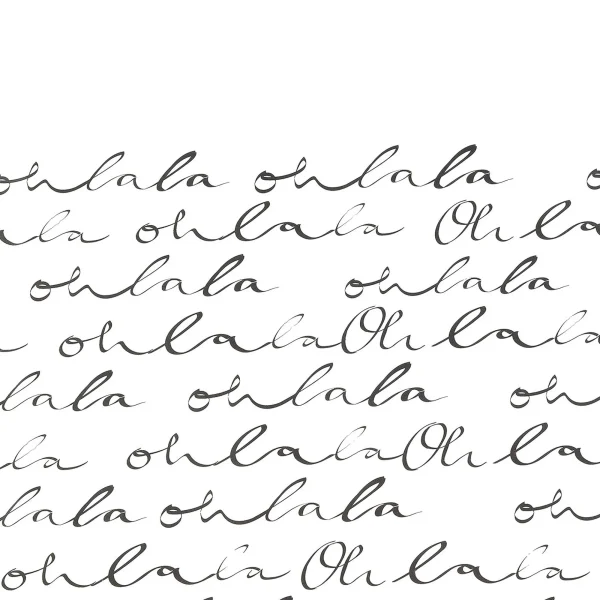 ohlala ohlala o
ala ohlala Ohla
ohlala ohlala
ohlalaOhlala
lala ohlala oh
la ohlalaOhla
lala ohlala oh
ohlala Ohlala